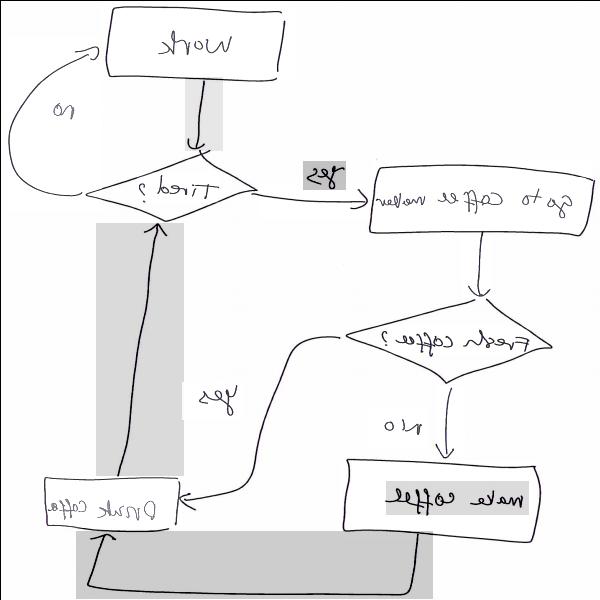 Work
no
Tired?
yes
Go to coffee maker
Fresh coffee?
yes
NO
Drink coffee
make coffee